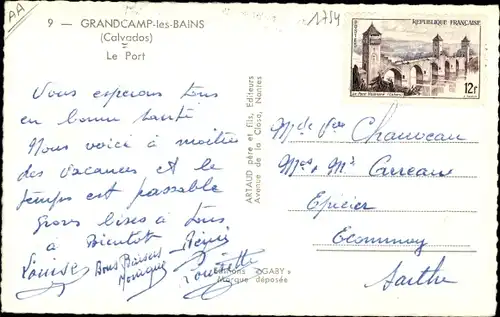 AA
9 — GRANDCAMP-les-BAINS
(Calvados)
Le Port
1754
REPUBLIQUE FRANÇAISE
POSTES
Le Pont Valentré (Cahors)
12F
Vous esperons tous
en bonne santé
Nous voici à moitier
des vacances et le
temps est passable
Gros bises à tous
à Bientot
Rémi
Louise
Bons Baisers
Monique
Louisette
ARTAUD père et fils, Editeurs
Avenue de la Close, Nantes
Editions «GABY»
Marque déposée
Mde Vve Chauveau
Mme & Mr Carreau
Epicier
Ecommoy
Sarthe